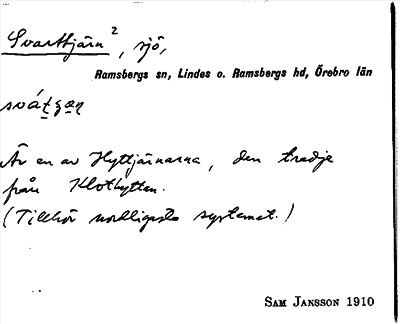 Svarttjärn 2, sjö,
Ramsbergs sn, Lindes o. Ramsbergs hd, Örebro län
Är en av Hyttjärnarna, den tredje
från Klothyttan.
(Tillhör nordligaste systemet.)
SAM JANSSON 1910